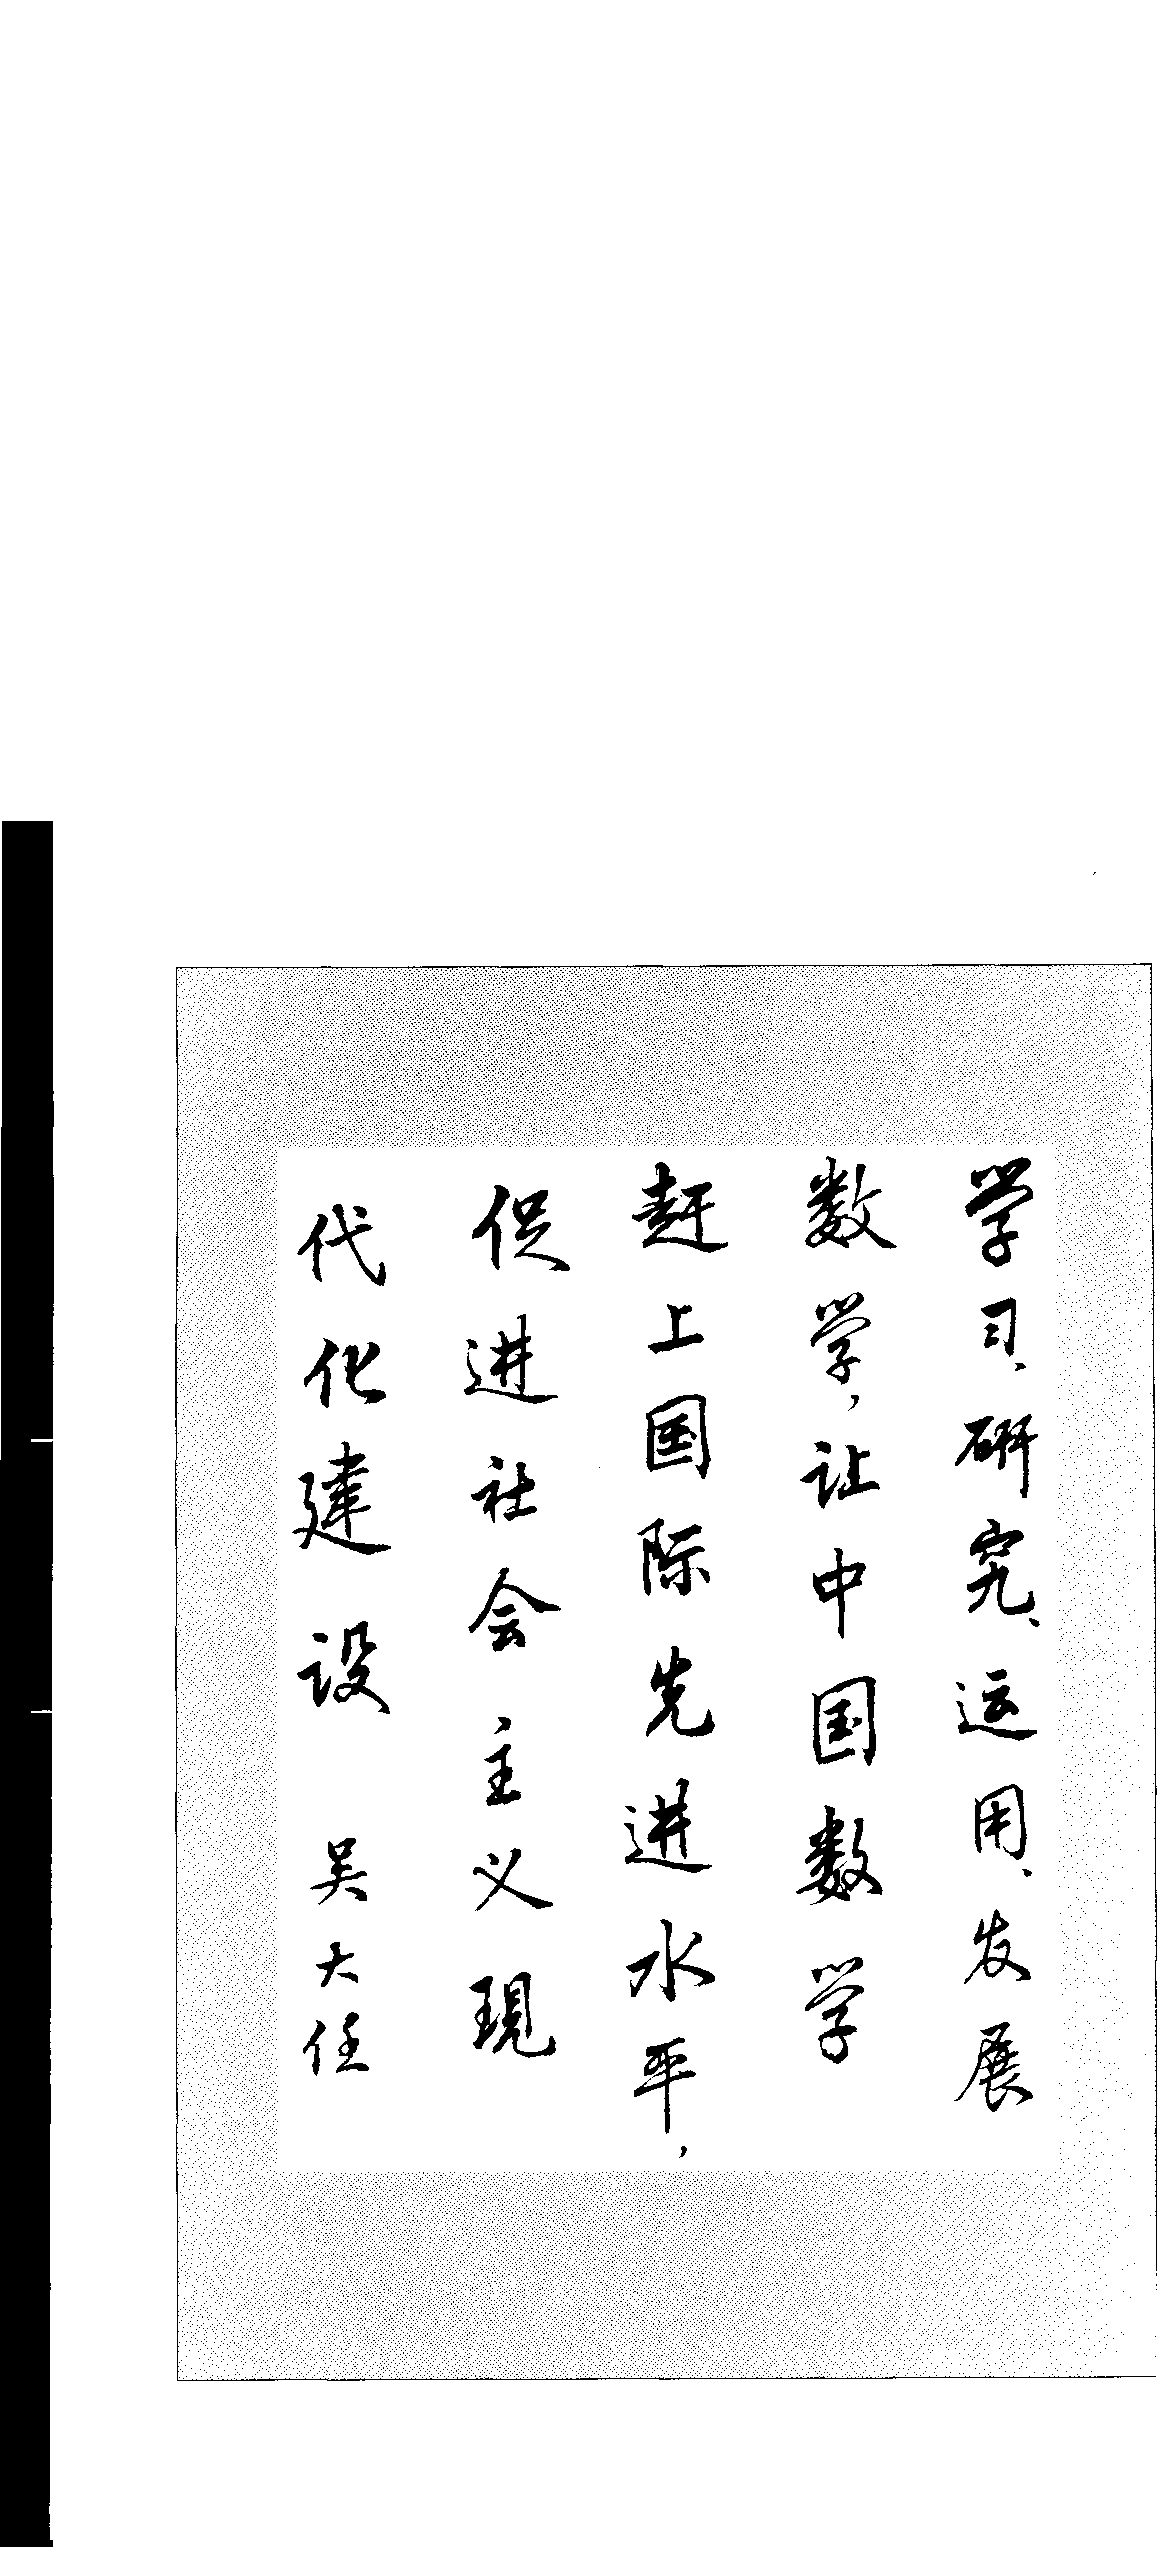 学习、研究、运用、发展
数学，让中国数学
赶上国际先进水平，
促进社会主义现
代化建设
吴大任